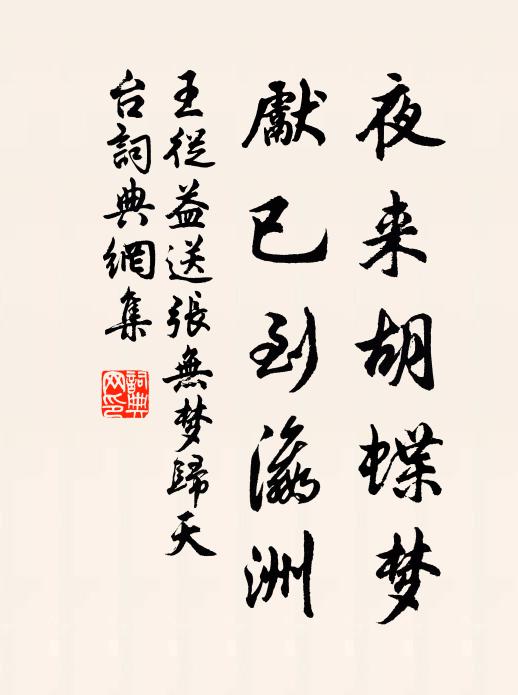 夜来胡蝶梦
献已到瀛洲
王從益送張無梦歸天
台詞典網集
詞典网印